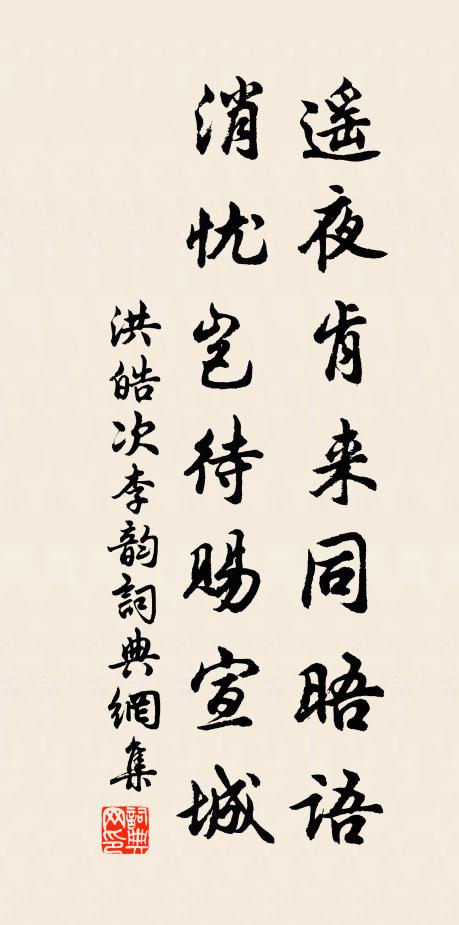 遥夜肯来同晤语
消忧岂待赐宣城
洪皓次李韵詞典網集
詞典网印